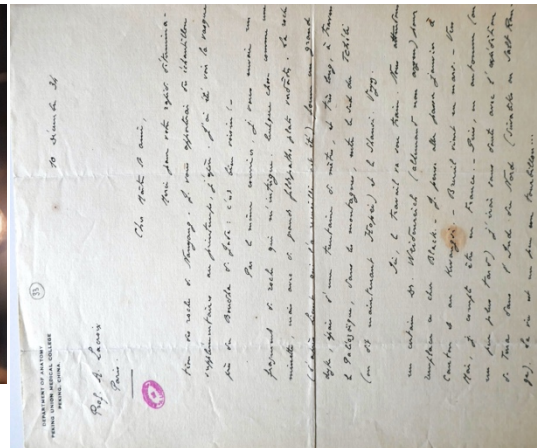 DEPARTMENT OF ANATOMY
PEKING UNION MEDICAL COLLEGE
PEKING, CHINA
33
Prof. A. Lacroix
Paris
10 décembre 34
Cher Maître et ami,
Merci pour votre rapide détermina-
tion des rochers de . Je vous apporterai des échantillons
supplémentaires au printemps, j'espère. J'ai été voir la
près du ; c'est bien
Par le même courrier, je vous envoie un
fragment de roche qui m'intrigue. Quelque chose comme une
minette mais avec de grands feldspaths plats
(d'après l'ami qui l'a recueillie) forme un grand
dyke épais d'une trentaine de mètres, et très long, à travers
le Paléozoïque, dans les montagnes, entre le sud du Tchéli
(on dit maintenant Hopei) et le Shansi.
Ici, le travail va son train. Nous attendons
un certain Dr Weidenreich (allemand non aryen) pour
remplacer ce cher Black. Je pense aller passer janvier à
Canton et au Kwangsi. - Breuil vient en mars. - Vers
Mai je compte être en France. - Puis, en automne (ou
un peu plus tard) j'irai sans doute avec l'expédition
de Terra dans l'Inde du Nord (Siwaliks et Salt Ran-
ge). La vie est un peu un tourbillon...